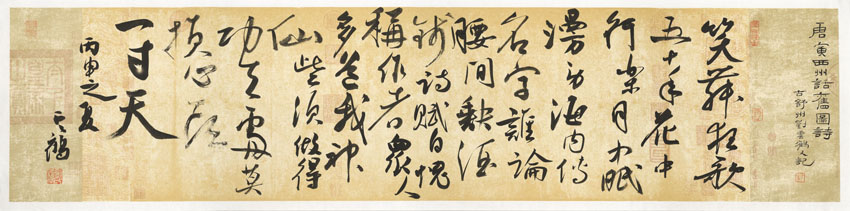 唐寅西州話舊圖詩
古舒州劉雲鶴又記
笑舞狂歌
五十年花中
行樂月中眠
漫勞海內傳
名字誰論
腰間缺酒
錢詩賦自愧
稱作者眾人
多道我神
仙些須做得
功夫處莫
損心頭
一寸天
丙申之夏
雲鶴